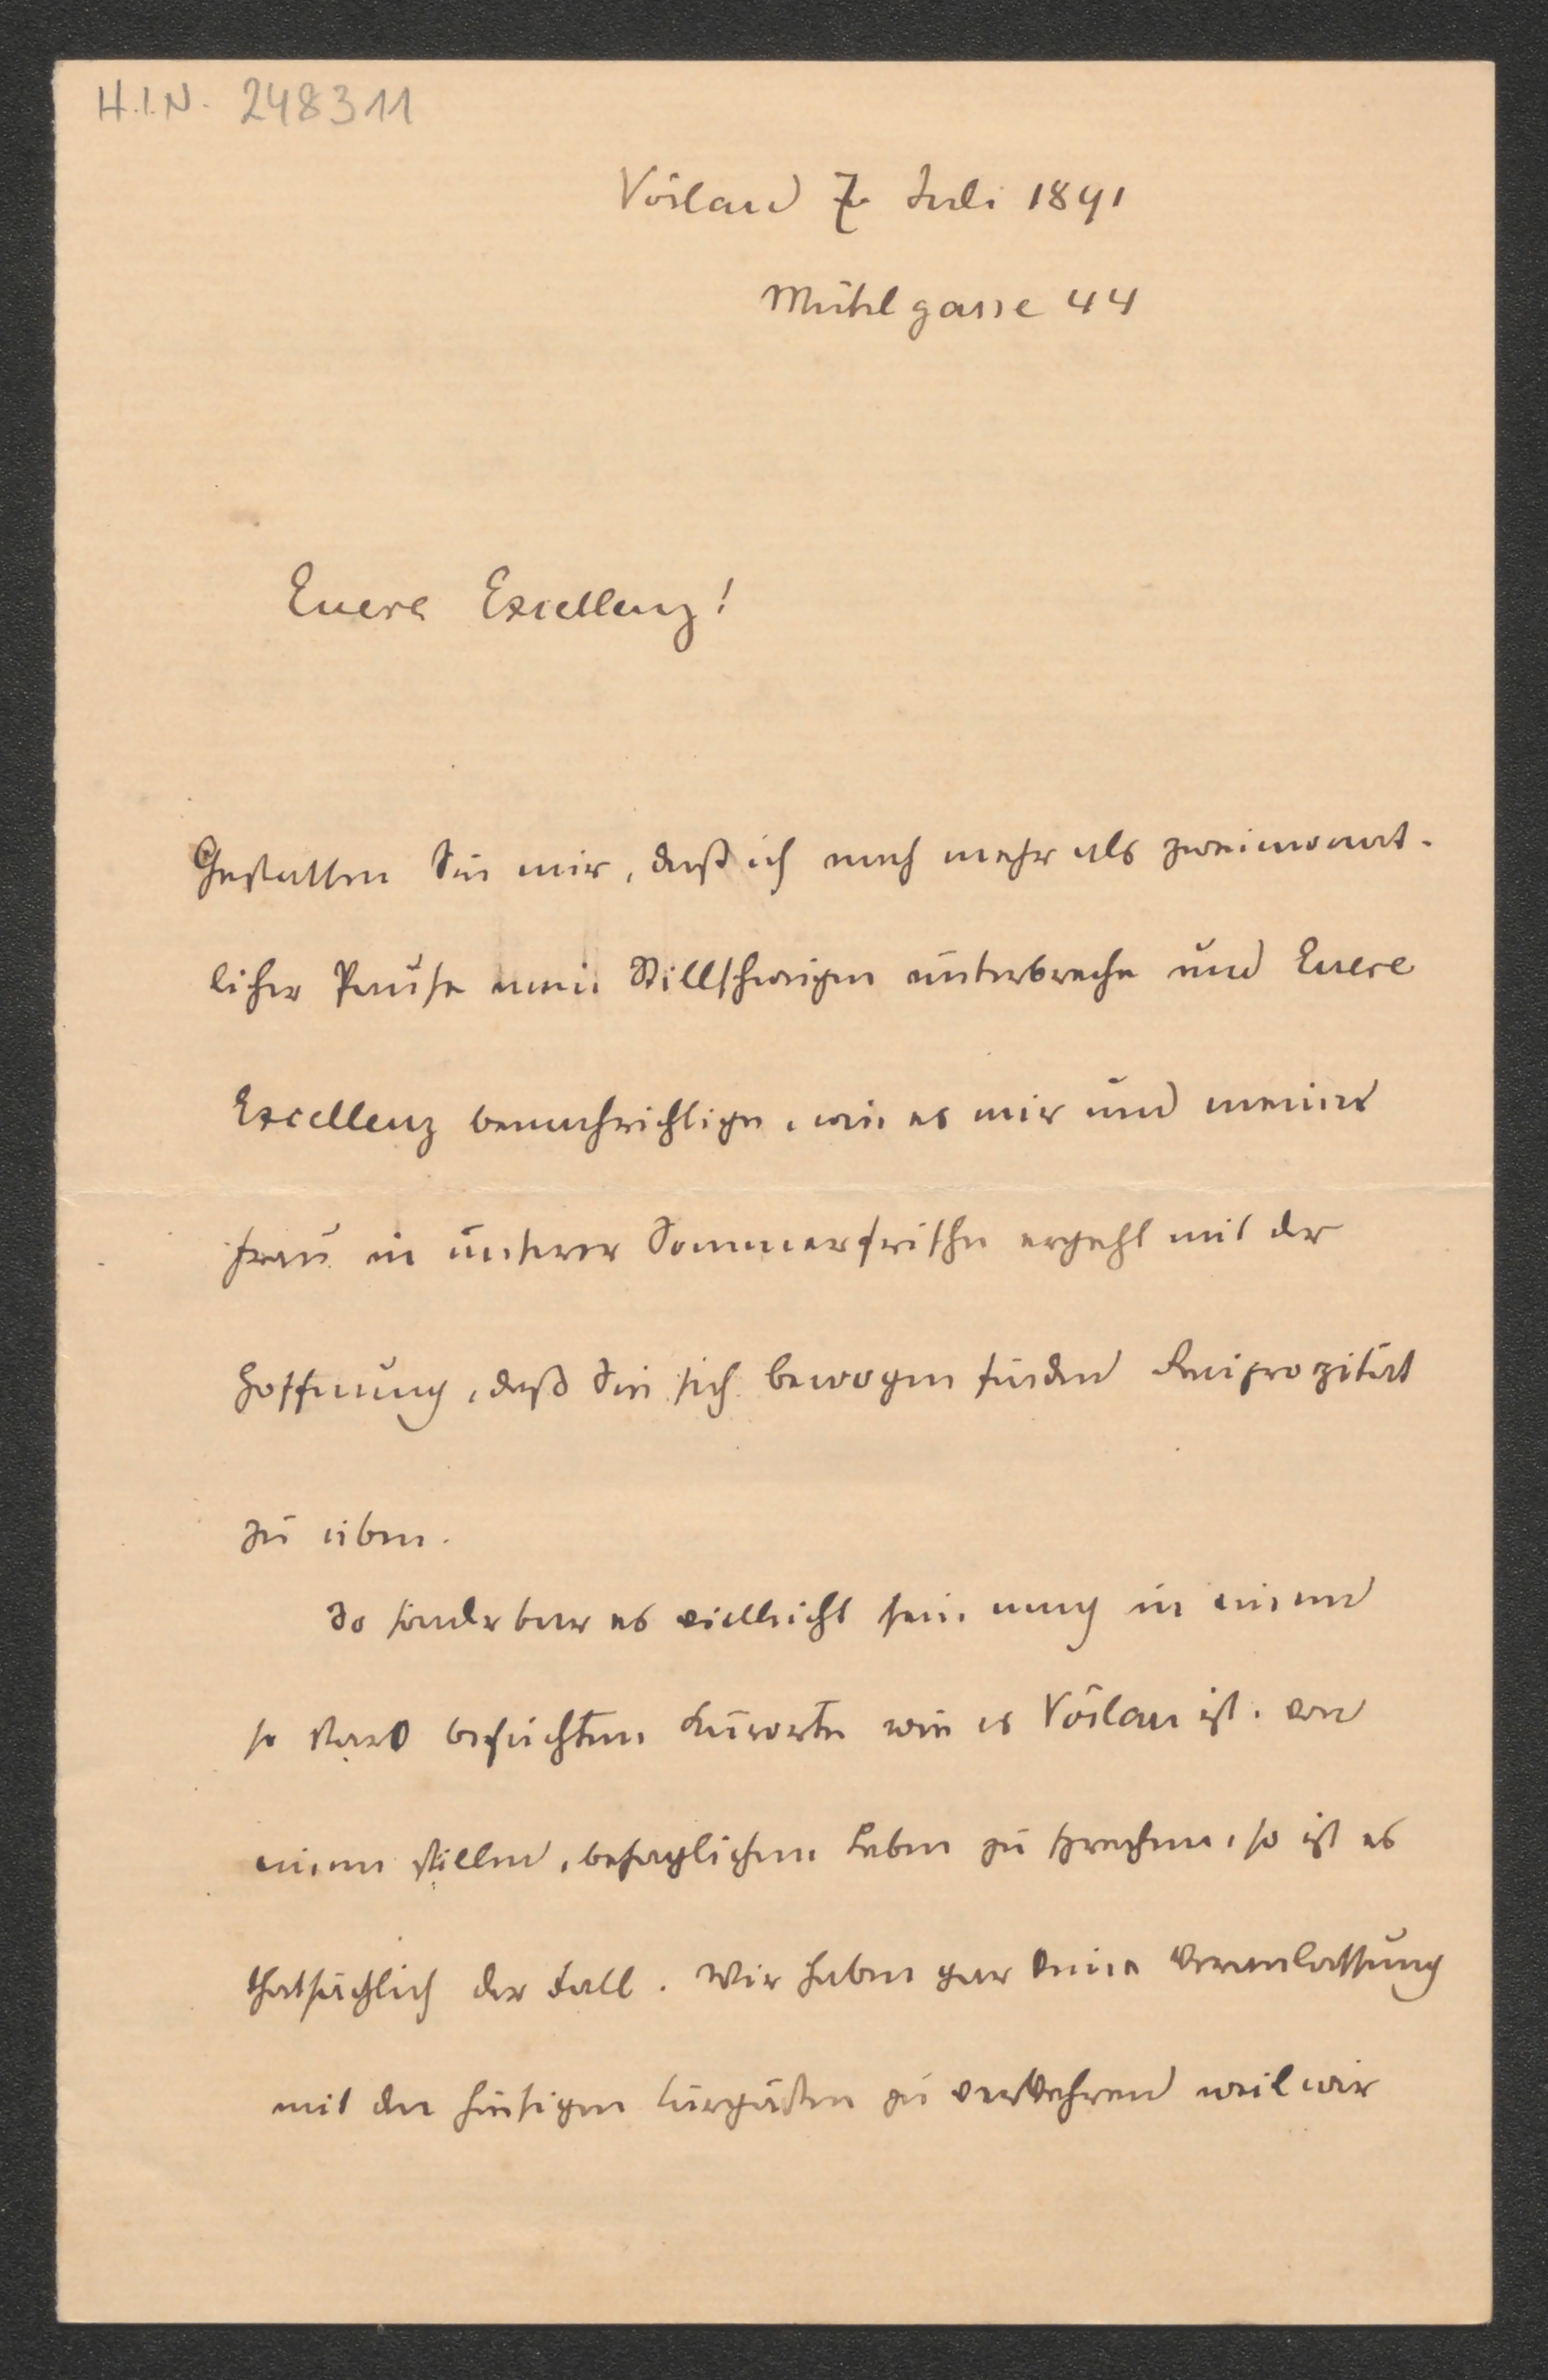 H.I.N. 248311
Vöslau 7. Juli 1891
Mühlgasse 44
Euere Excellenz!
Gestatten Sie mir, daß ich nach mehr als zweimonat-
licher Pause mein Stillschweigen unterbreche und Euere
Excellenz benachrichtige, wie es mir und meiner
Frau in unserer Sommerfrische ergeht mit der
Hoffnung, daß Sie sich bewogen finden Reziprozität
zu üben.
So sonderbar es vielleicht sein mag in einem
so stark besuchten Kurorte wie es Vöslau ist, von
einem stillen, behaglichen Leben zu sprechen, so ist es
thatsächlich der Fall. Wir haben gar keine Veranlassung
mit den hiesigen Kurgästen zu verkehren weil wir